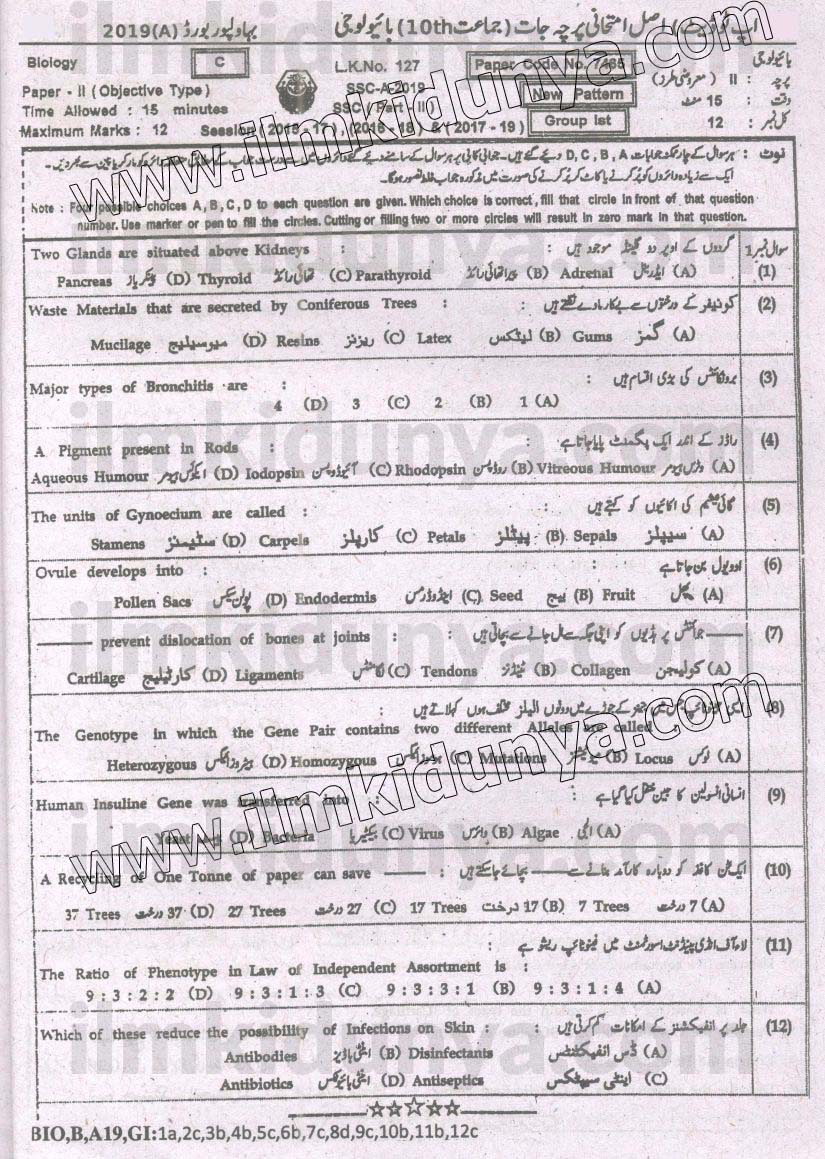 اپ ٹو ڈیٹ / اصل امتحانی پرچہ جات (جماعت 10th) بائیولوجی بہاولپور بورڈ 2019(A)
Biology C L.K.No. 127 Paper Code No. 7465 بائیولوجی
Paper - II (Objective Type) SSC-A-2019 New Pattern پرچہ : II (معروضی طرز)
Time Allowed : 15 minutes SSC (Part - II) وقت : 15 منٹ
Maximum Marks : 12 Session (2015 - 17), (2016 - 18) & (2017 - 19) Group Ist کل نمبر : 12
نوٹ : ہر سوال کے چار ممکنہ جوابات D, C, B, A دیئے گئے ہیں۔ جوابی کاپی پر ہر سوال کے سامنے دیئے گئے دائروں میں سے درست جواب کے مطابق متعلقہ دائرہ کو مارکر یا پین سے بھر دیں۔
ایک سے زیادہ دائروں کو پُر کرنے یا کاٹ کر پُر کرنے کی صورت میں مذکورہ جواب غلط تصور ہوگا۔
Note : Four possible choices A, B, C, D to each question are given. Which choice is correct, fill that circle in front of that question
number. Use marker or pen to fill the circles. Cutting or filling two or more circles will result in zero mark in that question.
Two Glands are situated above Kidneys : گردوں کے اوپر دو گلینڈ موجود ہیں : سوال نمبر 1
Pancreas پینکریاز (D) Thyroid تھائی رائڈ (C) Parathyroid پیرا تھائی رائڈ (B) Adrenal ایڈرینل (A) (1)
Waste Materials that are secreted by Coniferous Trees : کونیفر کے درختوں سے بیکار مادے نکلتے ہیں : (2)
Mucilage میوسیلیج (D) Resins ریزنز (C) Latex لیٹکس (B) Gums گمز (A)
Major types of Bronchitis are : برونکائٹس کی بڑی اقسام ہیں : (3)
4 (D) 3 (C) 2 (B) 1 (A)
A Pigment present in Rods : راڈز کے اندر ایک پگمنٹ پایا جاتا ہے : (4)
Aqueous Humour ایکوئس ہیومر (D) Iodopsin آئیوڈوپسن (C) Rhodopsin روڈوپسن (B) Vitreous Humour وٹرس ہیومر (A)
The units of Gynoecium are called : گائنی شیم کی اکائیوں کو کہتے ہیں (5)
Stamens سٹیمنز (D) Carpels کارپلز (C) Petals پیٹلز (B) Sepals سیپلز (A)
Ovule develops into : اوویول بن جاتا ہے (6)
Pollen Sacs پولن سیکس (D) Endodermis اینڈوڈرمس (C) Seed بیج (B) Fruit پھل (A)
——— prevent dislocation of bones at joints : ——— جوائنٹس پر ہڈیوں کو اپنی جگہ سے ہل جانے سے بچاتی ہیں : (7)
Cartilage کارٹیلیج (D) Ligaments لگامنٹس (C) Tendons ٹینڈنز (B) Collagen کولیجن (A)
ایسی جینوٹائپ جس میں جینز کے جوڑے میں دونوں الیلز مختلف ہوں کہلاتے ہیں (8)
The Genotype in which the Gene Pair contains two different Alleles are called
Heterozygous ہیٹروزائگس (D) Homozygous ہوموزائگس (C) Mutations میوٹیشنز (B) Locus لوکس (A)
Human Insuline Gene was transferred into : انسانی انسولین کا جین منتقل کیا گیا ہے : (9)
Yeast (D) Bacteria بیکٹیریا (C) Virus وائرس (B) Algae الجی (A)
A Recycling of One Tonne of paper can save ——— : ایک ٹن کاغذ کو دوبارہ کارآمد بنانے سے ——— بچائے جاسکتے ہیں : (10)
37 Trees 37 درخت (D) 27 Trees 27 درخت (C) 17 Trees 17 درخت (B) 7 Trees 7 درخت (A)
لاء آف انڈی پینڈنٹ اسورٹمنٹ میں فینوٹائپ ریشو ہے (11)
The Ratio of Phenotype in Law of Independent Assortment is :
9 : 3 : 2 : 2 (D) 9 : 3 : 1 : 3 (C) 9 : 3 : 3 : 1 (B) 9 : 3 : 1 : 4 (A)
Which of these reduce the possibility of Infections on Skin : جلد پر انفیکشنز کے امکانات کم کرتی ہیں : (12)
Antibodies اینٹی باڈیز (B) Disinfectants ڈس انفیکٹنٹس (A)
Antibiotics اینٹی بائیوٹکس (D) Antiseptics اینٹی سیپٹکس (C)
BIO,B,A19,GI:1a,2c,3b,4b,5c,6b,7c,8d,9c,10b,11b,12c
www.ilmkidunya.com
www.ilmkidunya.com
ilmkidunya.com
ilmkidunya.com
ilmkidunya.com
ilmkidunya.com
ilmkidunya.com